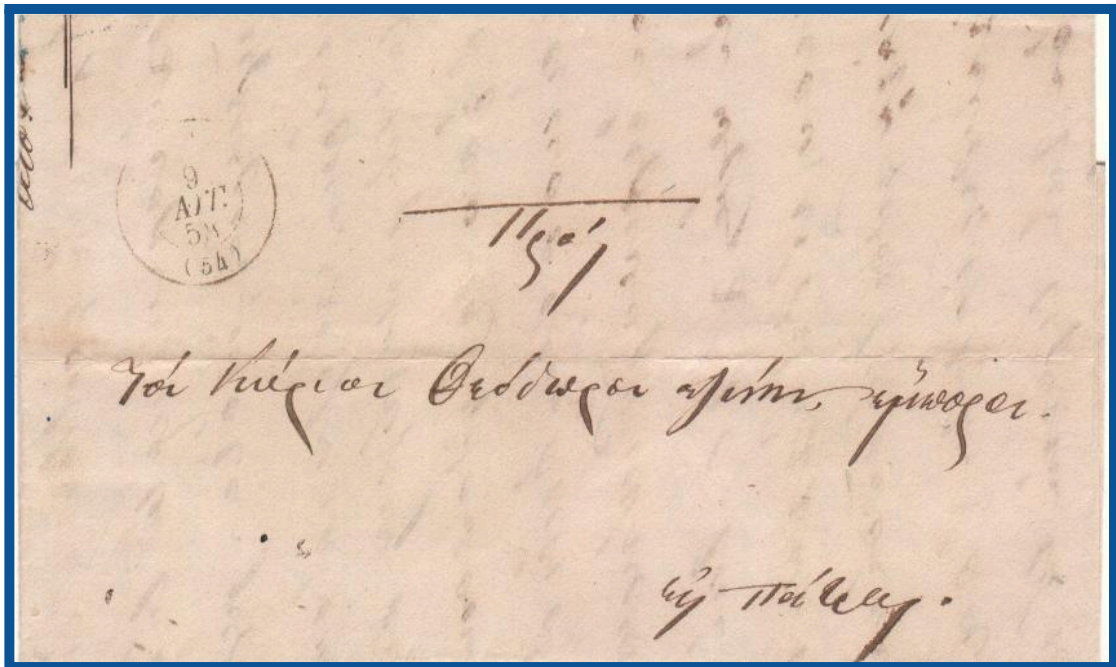 9
ΑΥΓ:
58
(54)
Πρός
Τόν Κύριον Θεόδωρον ἔμπορον.
εἰς Πάτρας.